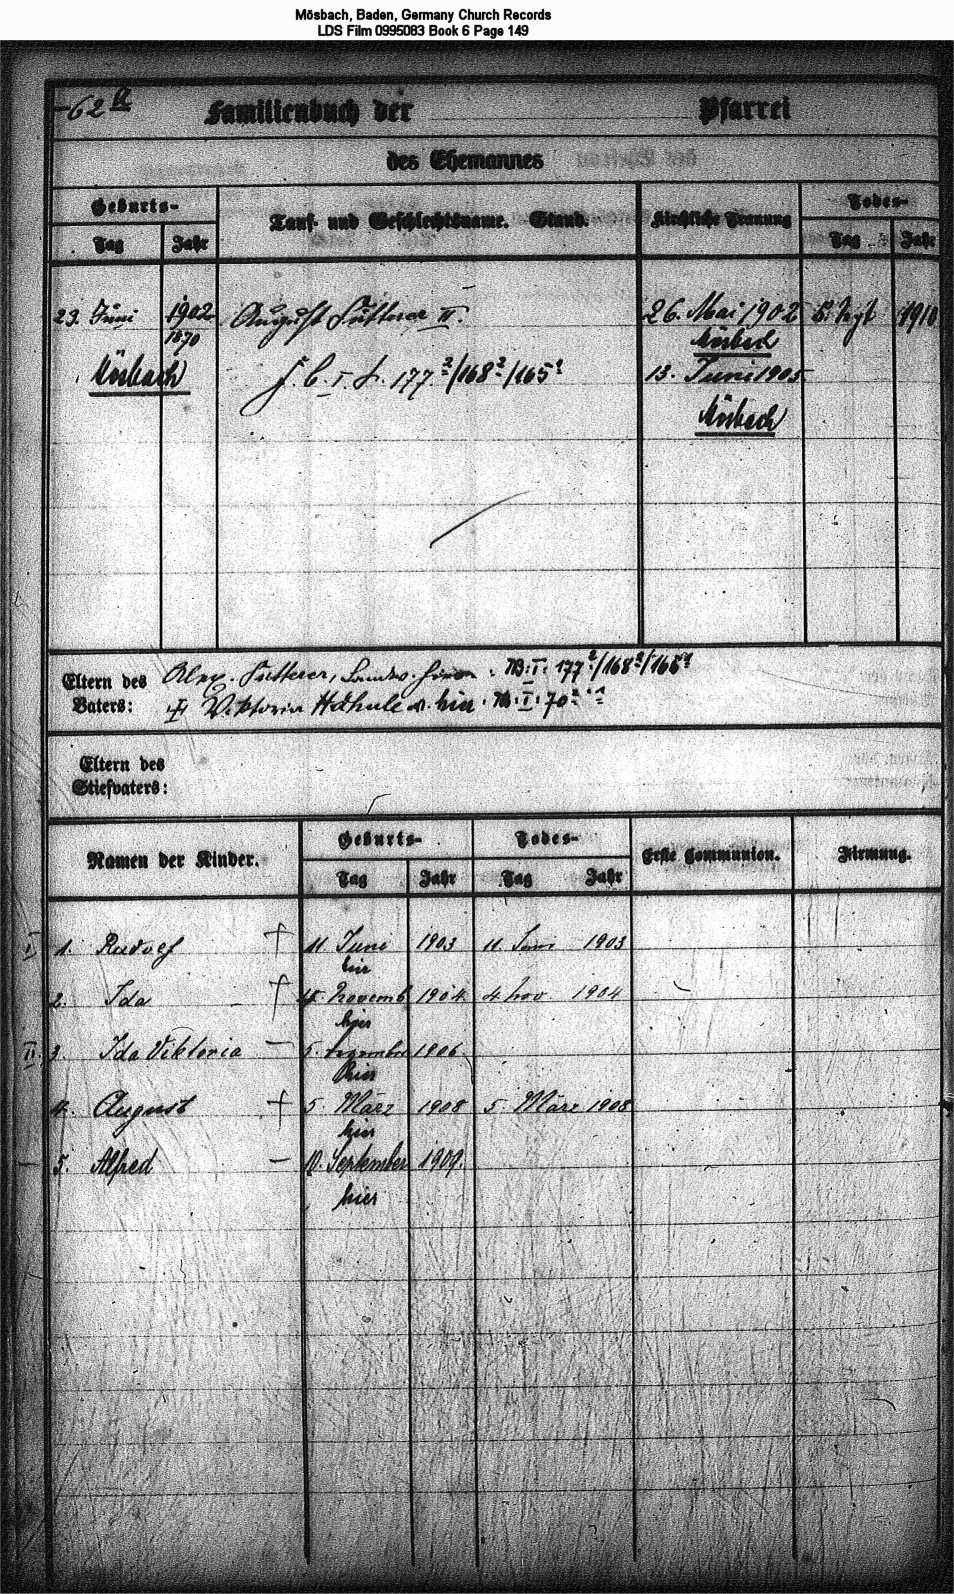 Mösbach, Baden, Germany Church Records
LDS Film 0995083 Book 6 Page 149
62 a
Familienbuch der Pfarrei
des Ehemannes
Geburts- Tauf- und Geschlechtsname. Stand. Kirchliche Trauung Todes-
Tag Jahr Tag Jahr
23. Juni 1902 August Futterer II. 26. Mai 1902 1910
1870 Mösbach
Mösbach 177 2/168 2/165 1 13. Juni 1905
Mösbach
Eltern des Vaters:
Alex. Futterer, Landw. hier. B. I. 177 2/168 2/165 1
Viktoria Hähnle v. hier. B. I. 70
Eltern des Stiefvaters:
Namen der Kinder. Geburts- Todes- Erste Communion. Firmung.
Tag Jahr Tag Jahr
I 1. Rudolf † 11. Juni 1903 11. Juni 1903
hier
2. Ida † Novemb 1904. 4. Nov. 1904
hier
II. 3. Ida Viktoria — 5. 1906.
hier
4. August † 5. März 1908 5. März 1908
hier
5. Alfred — 10. September 1909.
hier